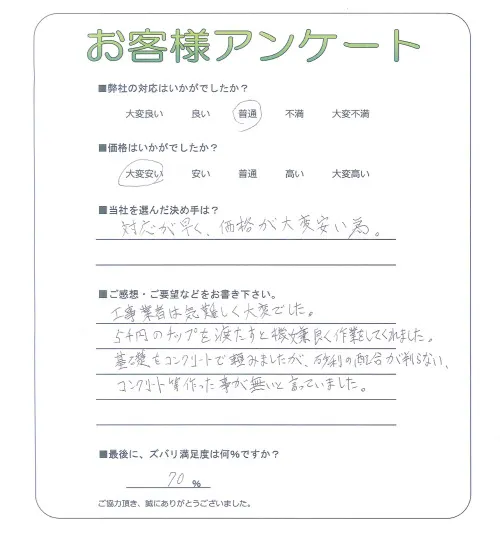 お客様アンケート
■弊社の対応はいかがでしたか?
大変良い 良い 普通 不満 大変不満
■価格はいかがでしたか?
大変安い 安い 普通 高い 大変高い
■当社を選んだ決め手は?
対応が早く、価格が大変安い為。
■ご感想・ご要望などをお書き下さい。
工事業者は気難しく大変でした。
5千円のチップを渡たすと機嫌良く作業をしてくれました。
基礎をコンクリートで頼みましたが、砂利の配合が判らない、
コンクリート等作った事が無いと言っていました。
■最後に、ズバリ満足度は何%ですか?
70 %
ご協力頂き、誠にありがとうございました。